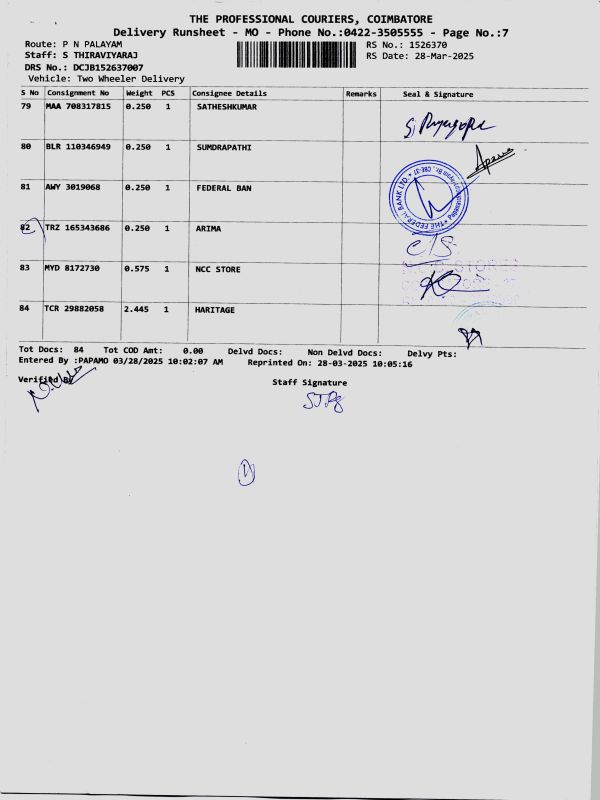 THE PROFESSIONAL COURIERS, COIMBATORE
Delivery Runsheet - MO - Phone No.:0422-3505555 - Page No.:7
Route: P N PALAYAM RS No.: 1526370
Staff: S THIRAVIYARAJ RS Date: 28-Mar-2025
DRS No.: DCJB152637007
Vehicle: Two Wheeler Delivery
S No Consignment No Weight PCS Consignee Details Remarks Seal & Signature
79 MAA 708317815 0.250 1 SATHESHKUMAR
80 BLR 110346949 0.250 1 SUMDRAPATHI
81 AWY 3019068 0.250 1 FEDERAL BAN
THE FEDERAL BANK LTD.
82 TRZ 165343686 0.250 1 ARIMA
83 MYD 8172730 0.575 1 NCC STORE
84 TCR 29882058 2.445 1 HARITAGE
Tot Docs: 84 Tot COD Amt: 0.00 Delvd Docs: Non Delvd Docs: Delvy Pts:
Entered By :PAPAMO 03/28/2025 10:02:07 AM Reprinted On: 28-03-2025 10:05:16
Verified By Staff Signature
1